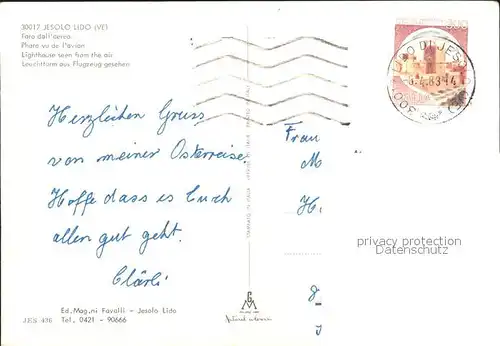 30017 JESOLO LIDO (VE)
Faro dall'aereo
Phare vu de l'avion
Lighthouse seen from the air
Leuchtturm aus Flugzeug gesehen
LIDO DI JESOLO
3.4.83-14
300
Herzlichen Gruss
von meiner Osterreise.
Hoffe dass es Euch
allen gut geht.
Clärli
Frau
M
H
privacy protection
Datenschutz
Ed. Mag.ni Favalli - Jesolo Lido
JES 436 Tel. 0421 - 90666